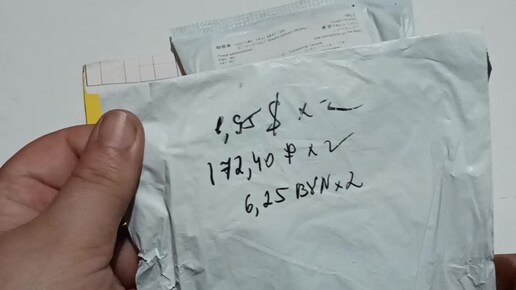 1,95 $ x 2
172,40 ₽ x 2
6,25 BYN x 2